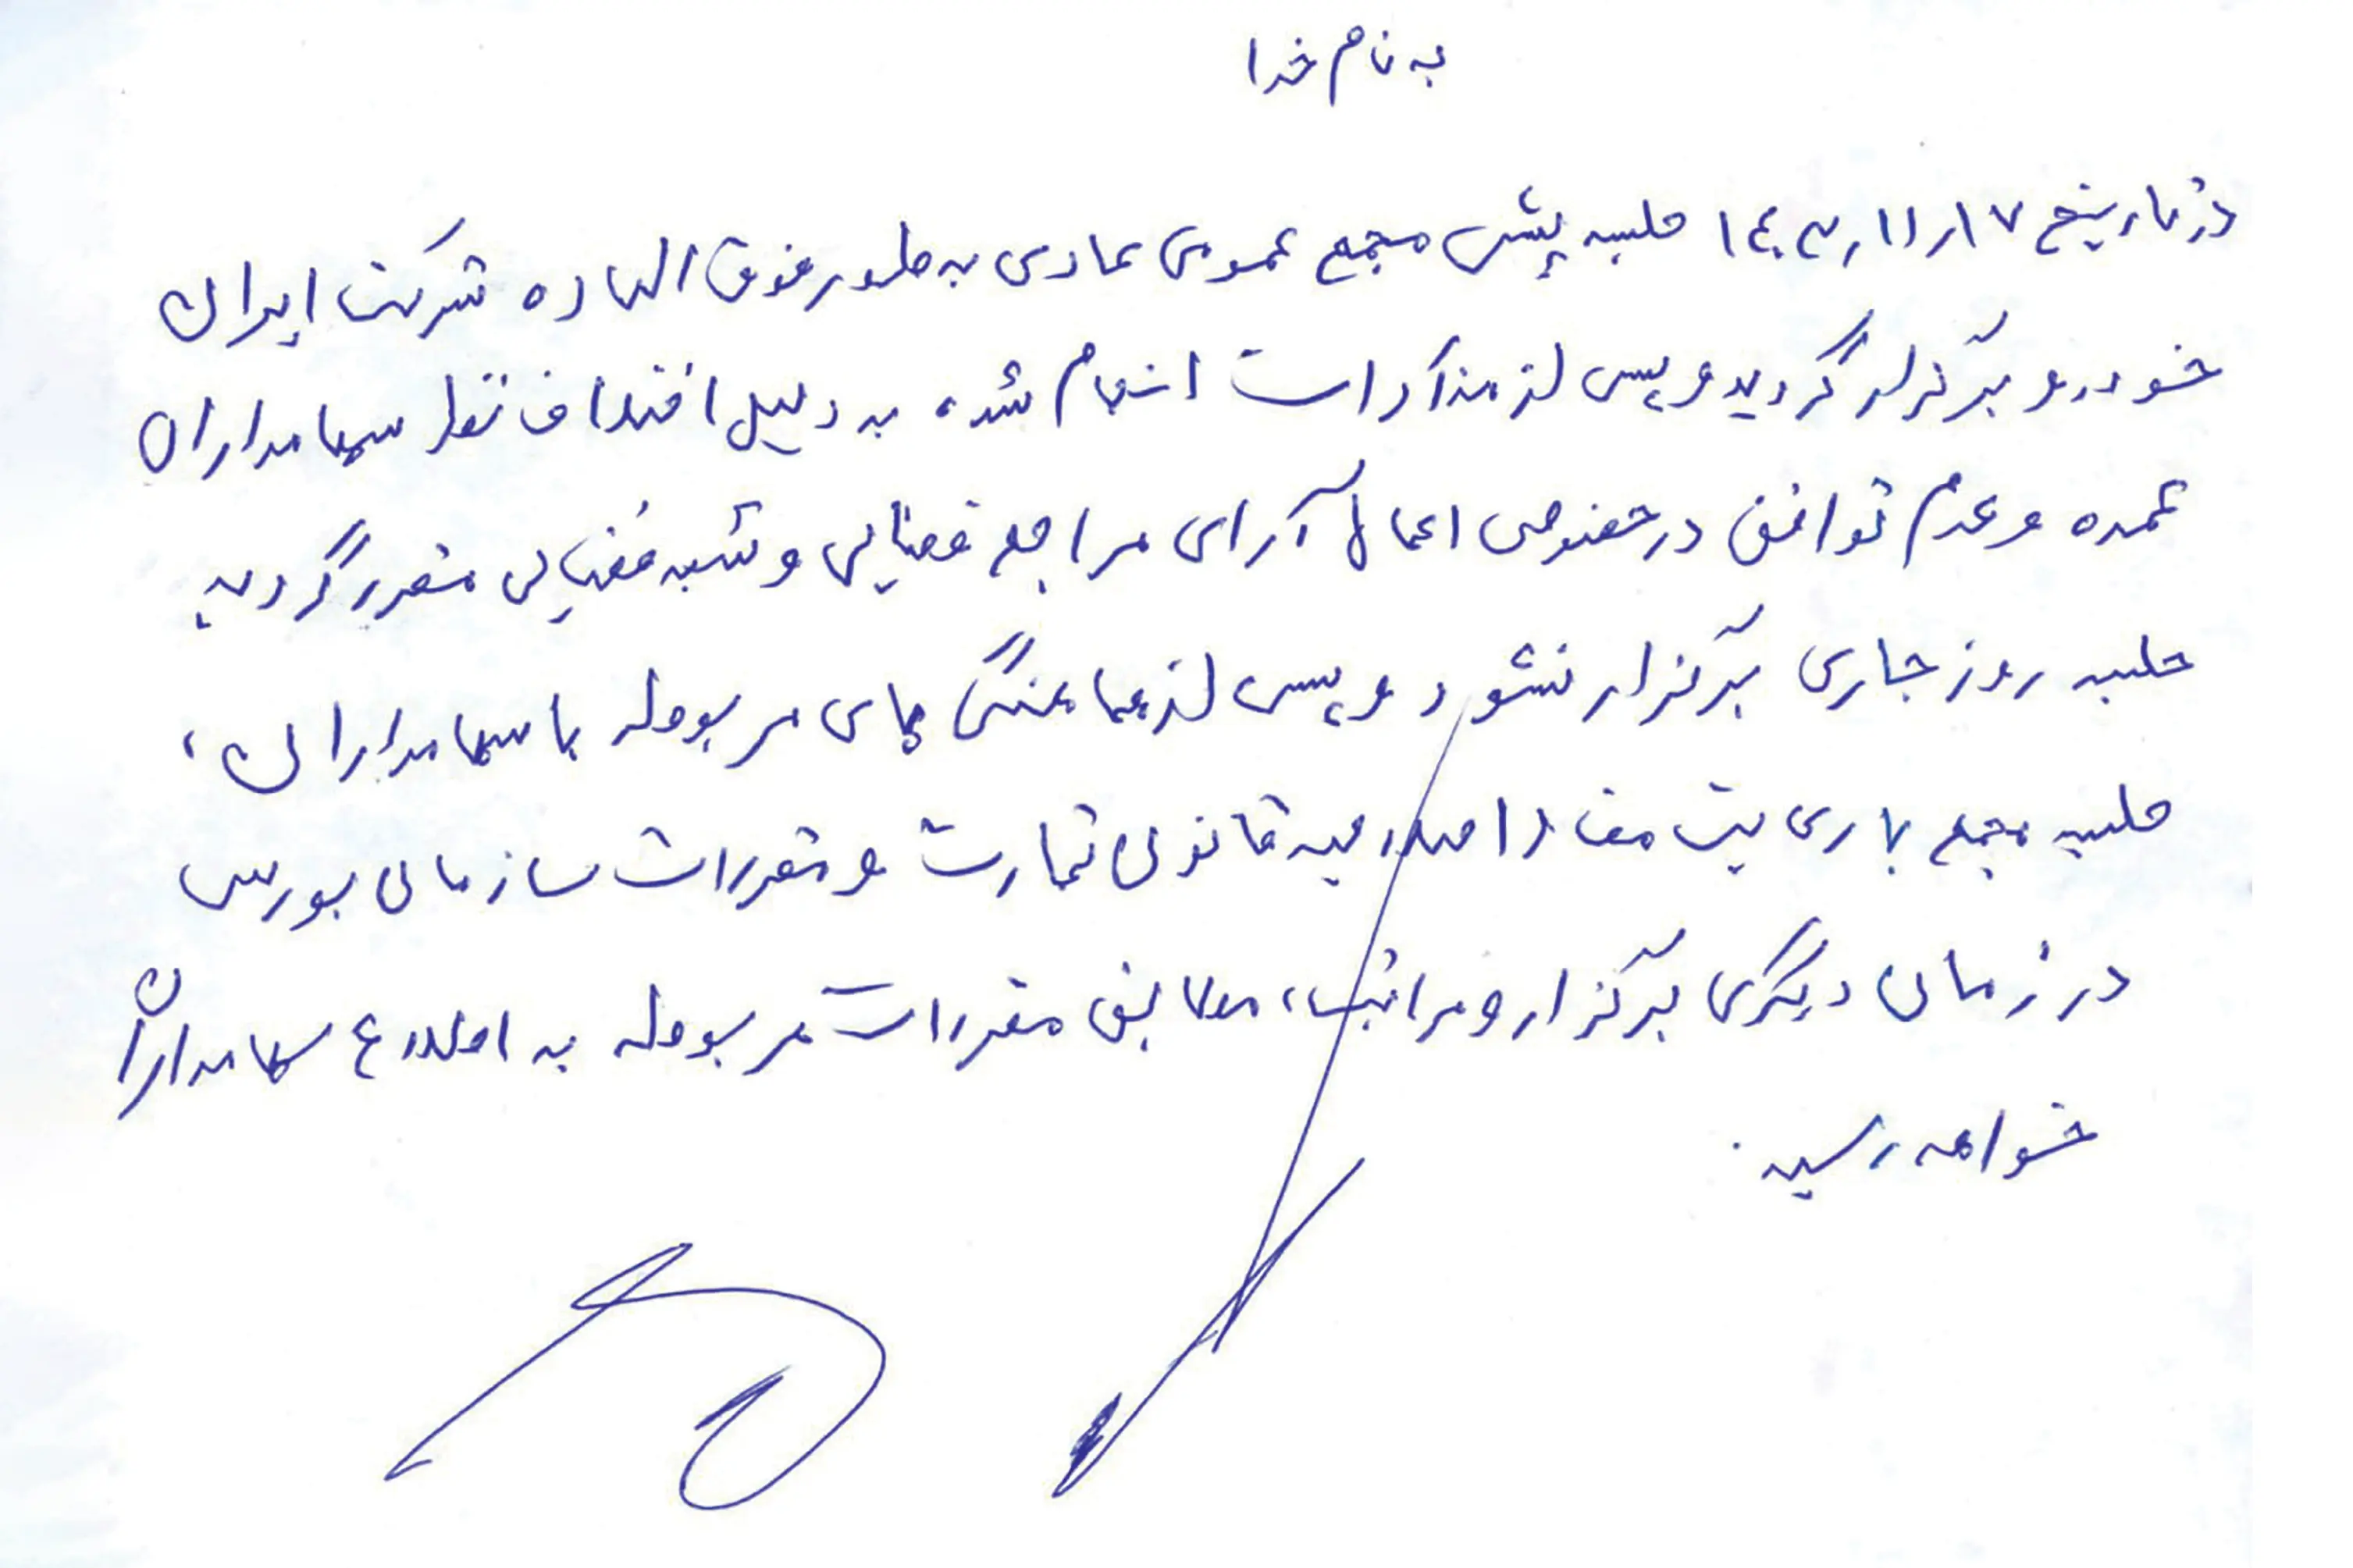 به نام خدا
در تاریخ ۱۴۰۳/۱۱/۱۷ جلسه پیش مجمع عمومی عادی به طور فوق العاده شرکت ایران
خودرو برگزار گردید و پس از مذاکرات انجام شده به دلیل اختلاف نظر سهامداران
عمده و عدم توافق در خصوص اعمال آرای مراجع قضایی و شبه قضایی مقرر گردید
جلسه روز جاری برگزار نشود و پس از هماهنگی های مربوطه با سهامداران،
جلسه مجمع با رعایت مفاد اصلاحیه قانون تجارت و مقررات سازمان بورس
در زمان دیگری برگزار و مراتب، مطابق مقررات مربوطه به اطلاع سهامداران
خواهد رسید.